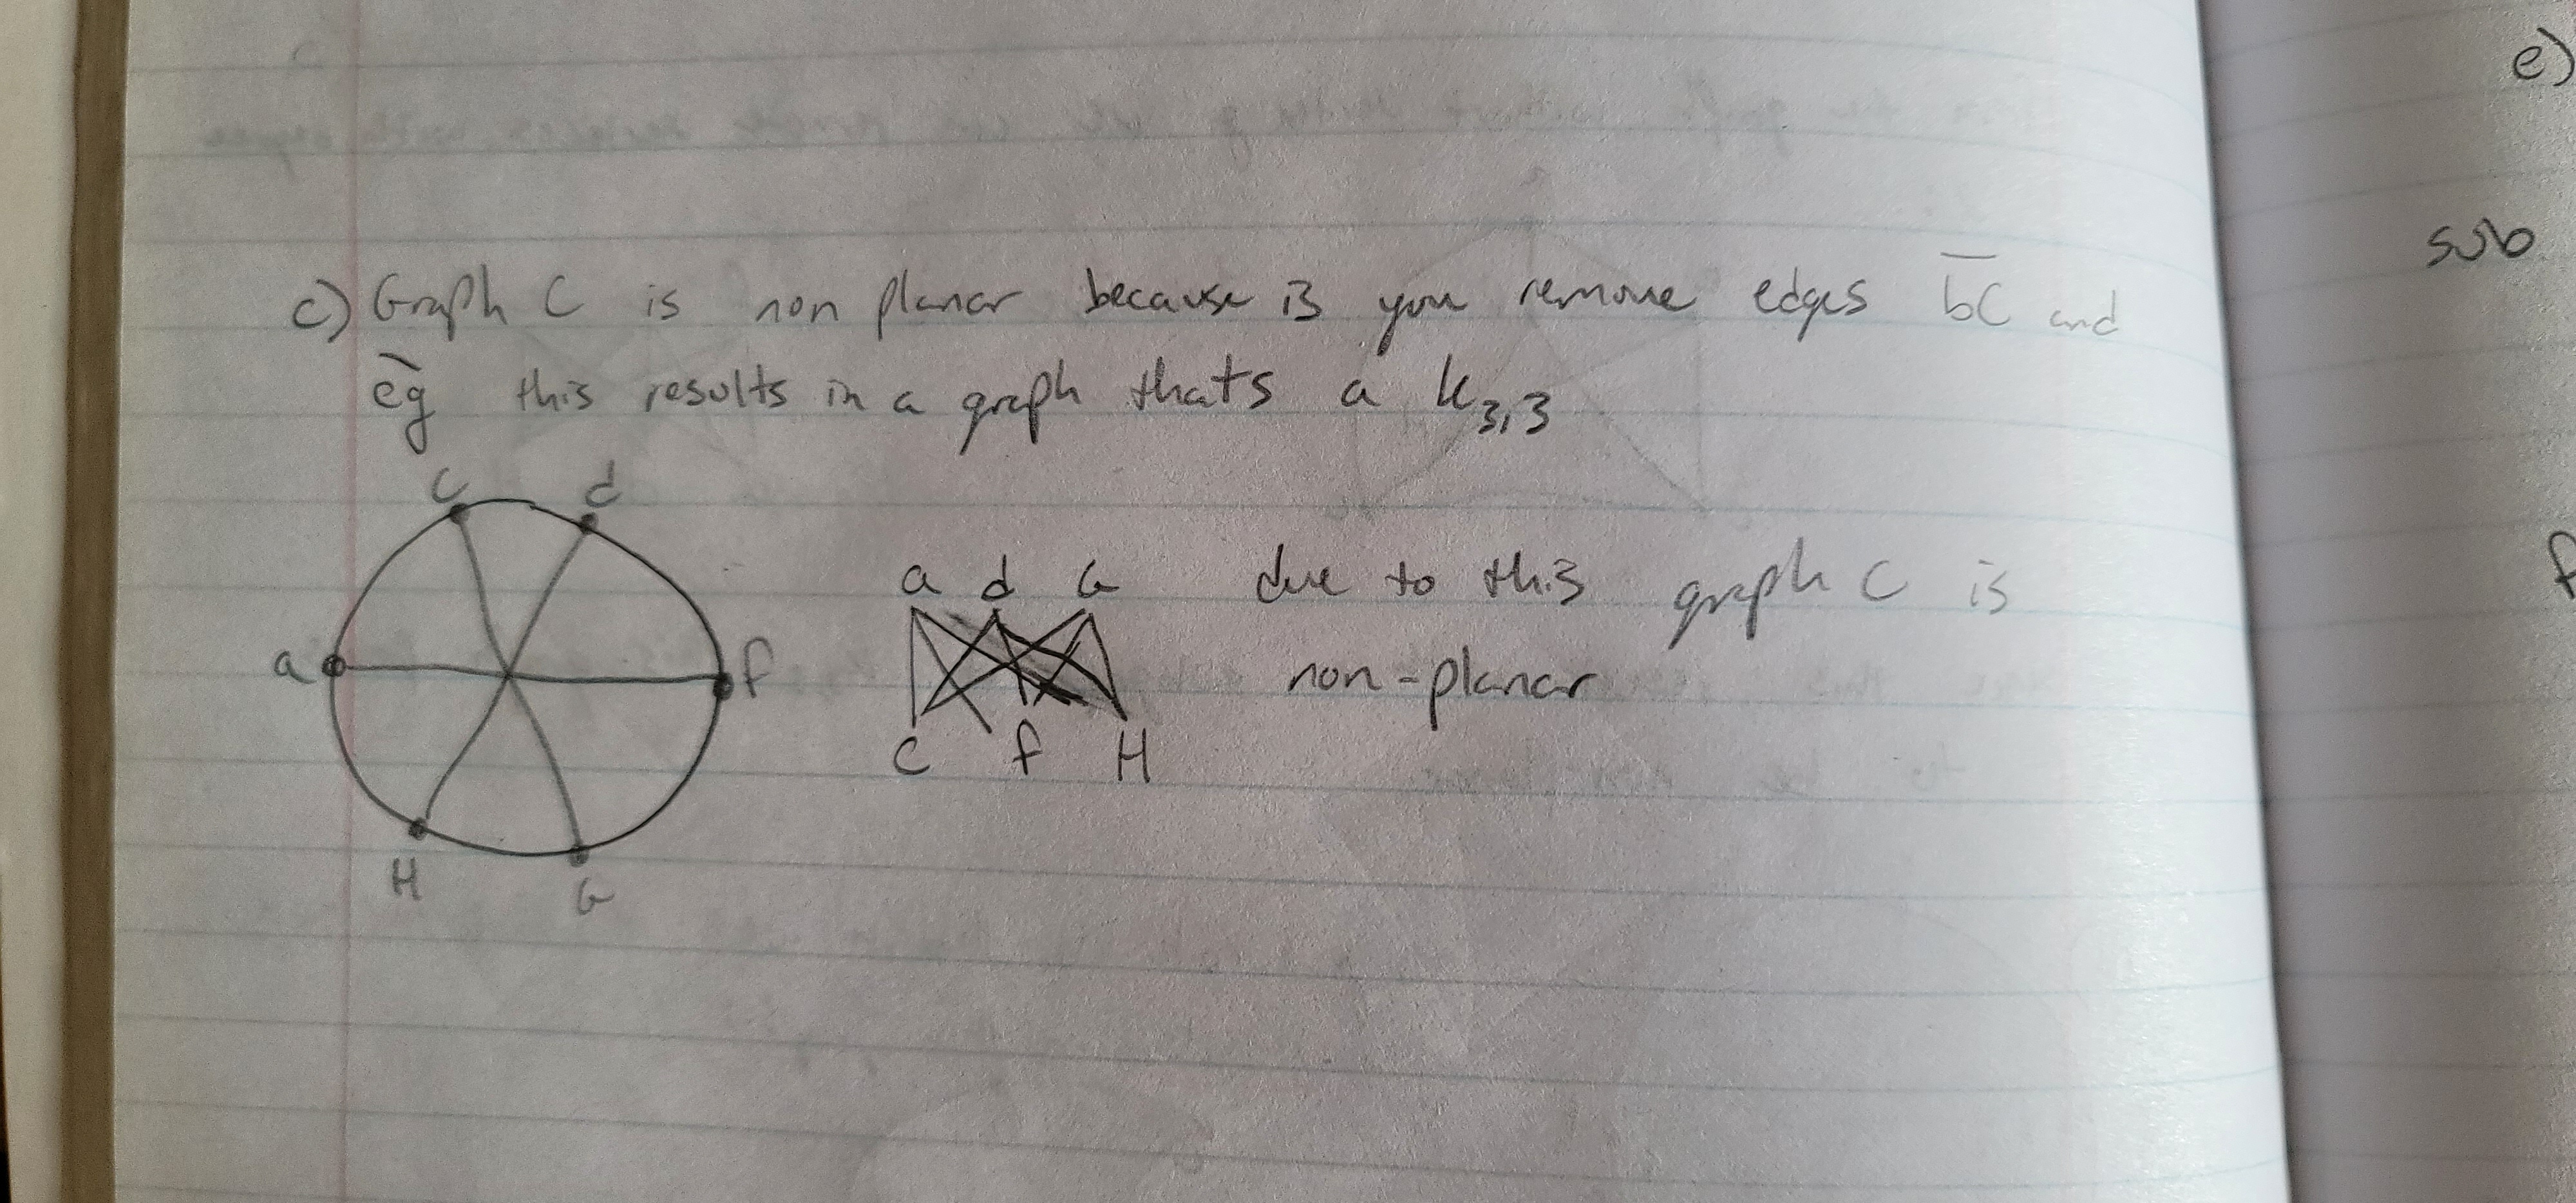 c) Graph C is non planar because is you remove edges bC and
eg this results in a graph thats a K3,3
a
C
d
f
G
H
a d G
C f H
due to this graph C is
non-planar
e)